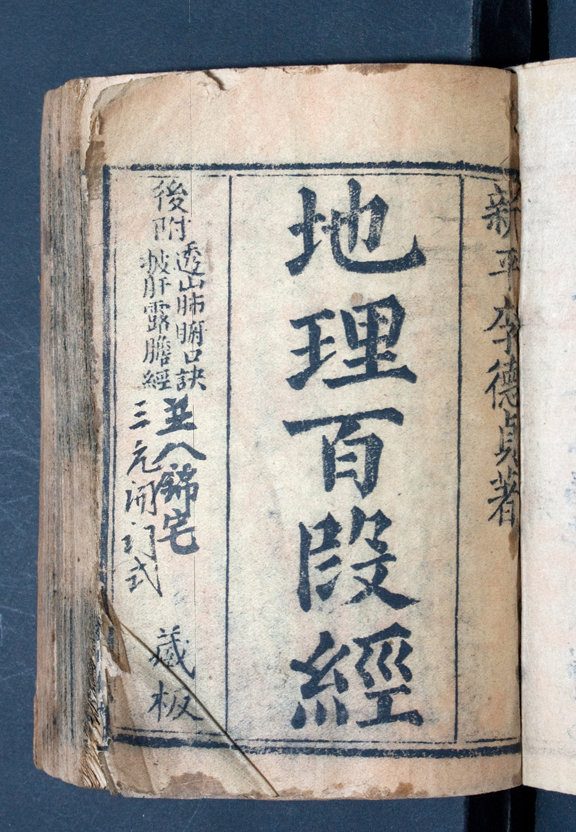 新平李德貞著
地理百段經
後附
透山肺腑口訣
披肝露膽經
並八錦宅
三元開門式
藏板